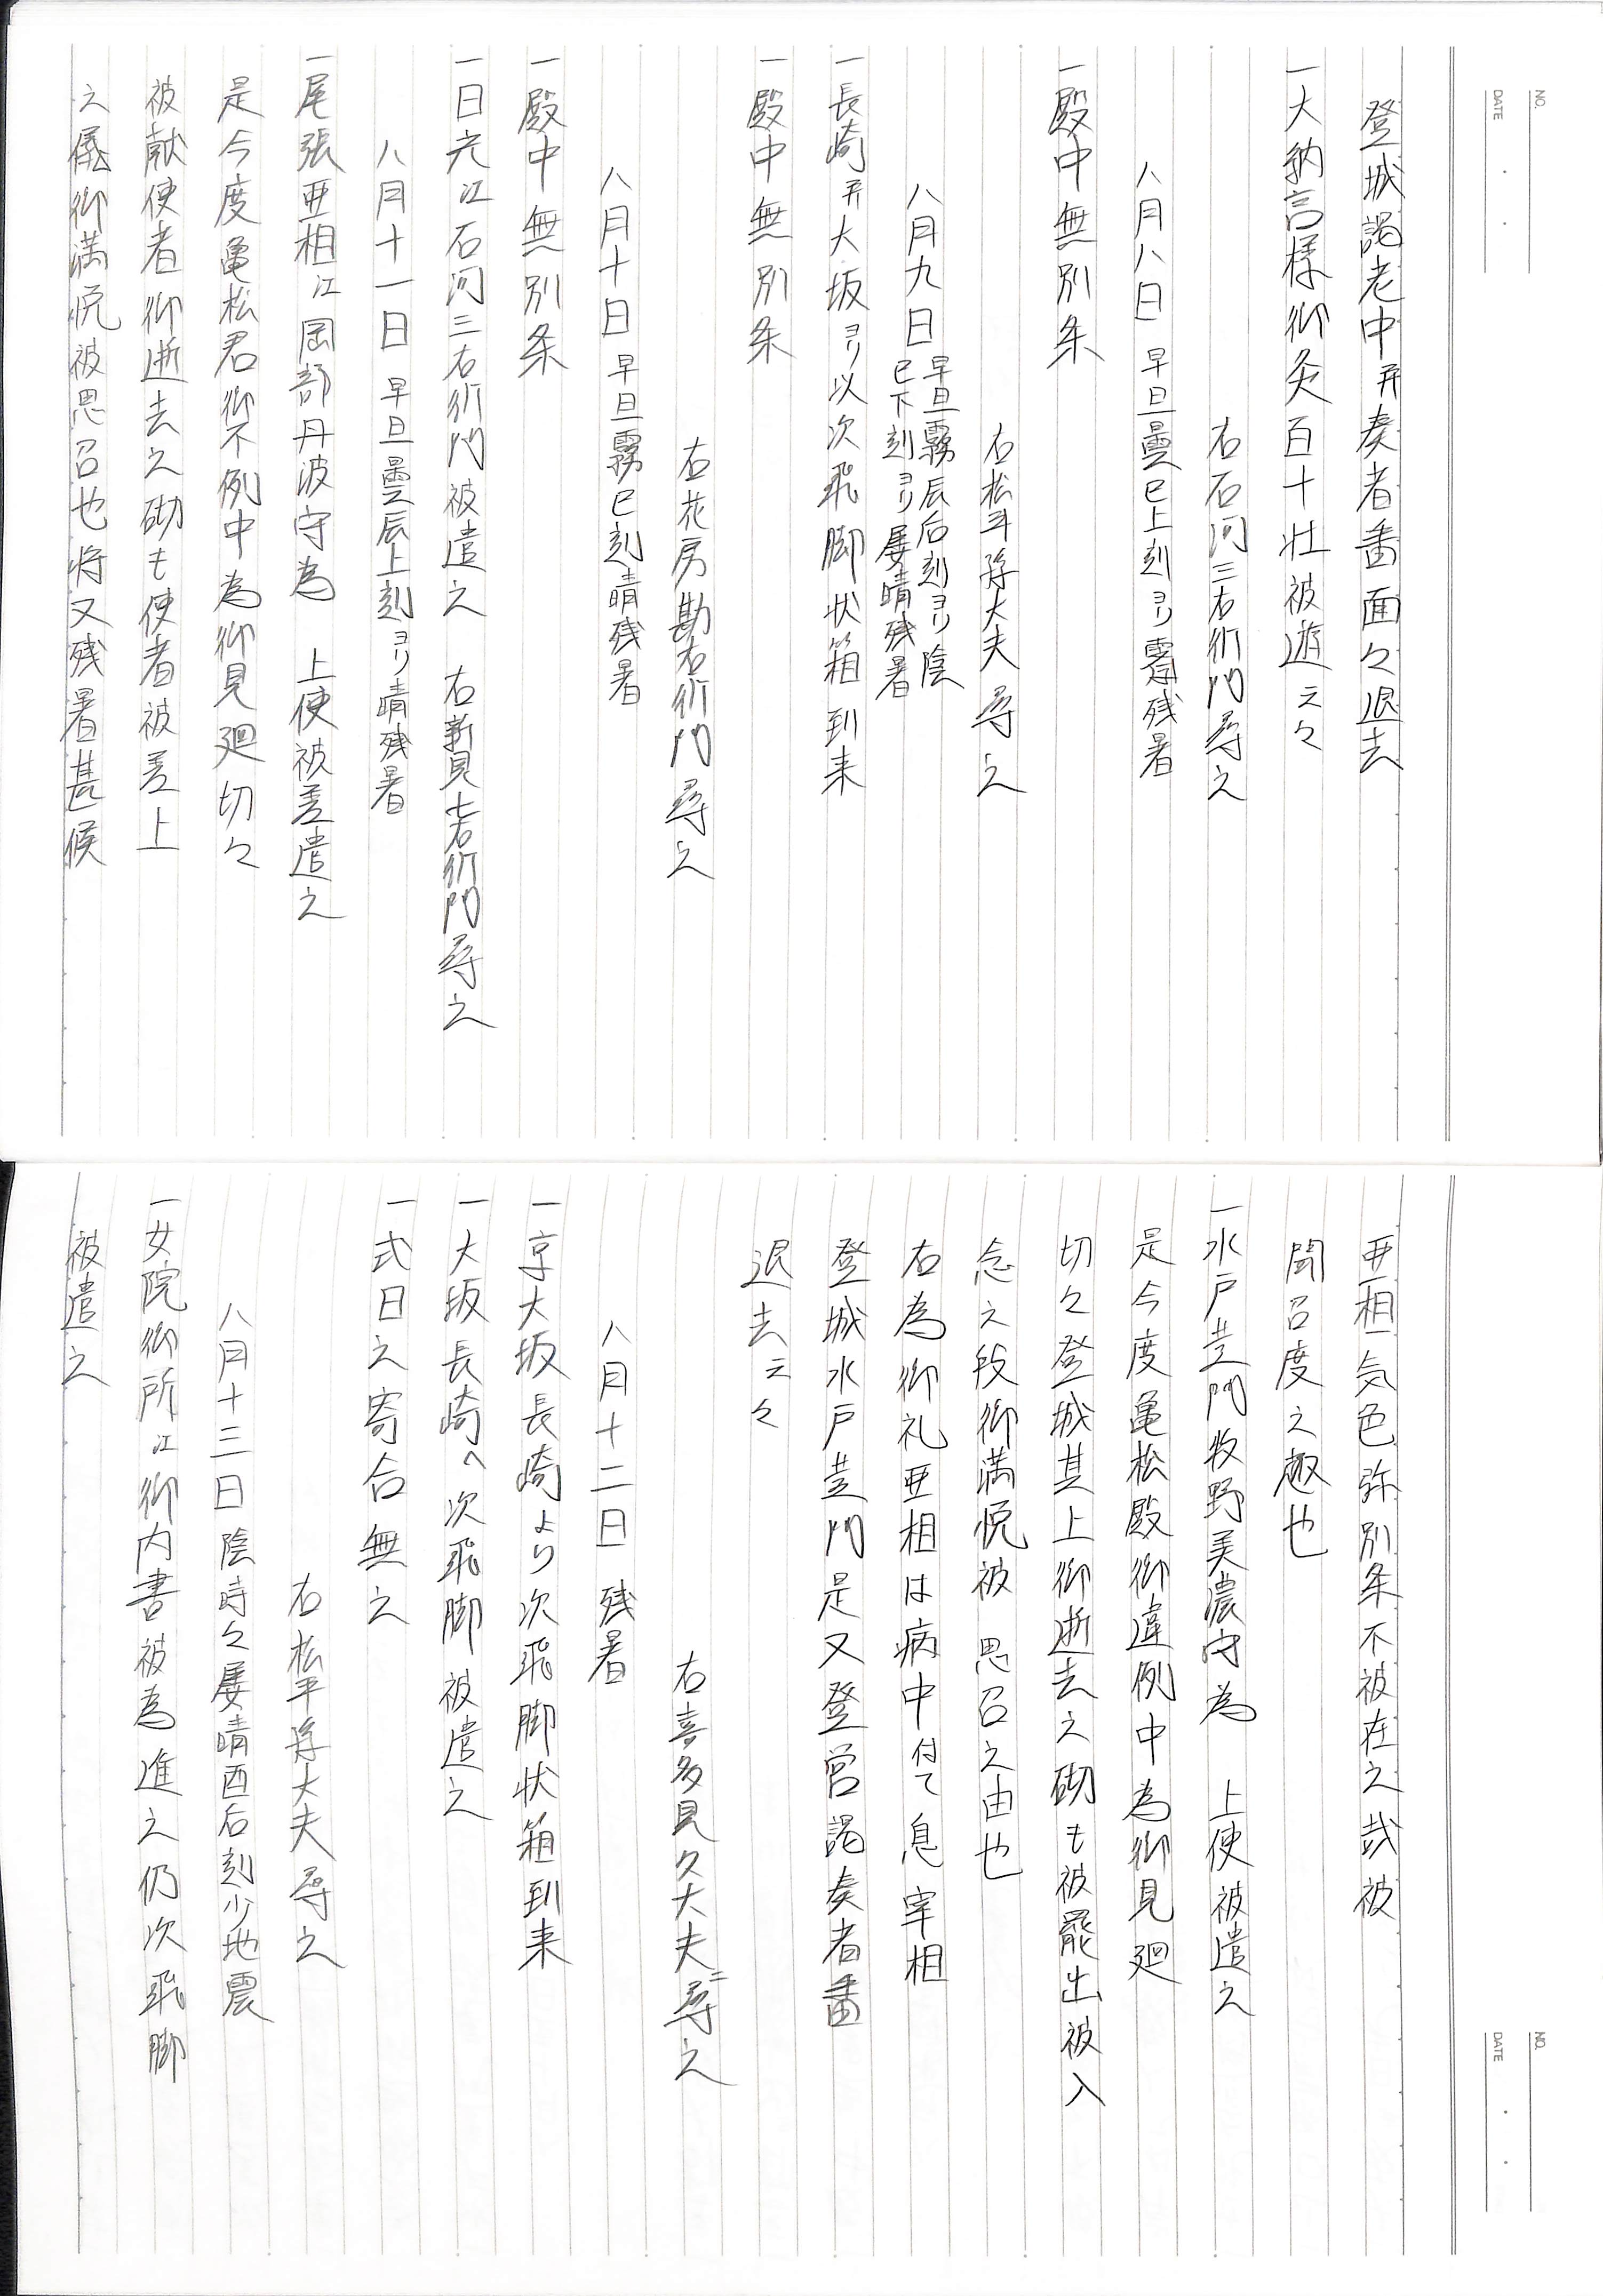 NO.
DATE
登城謁老中并奏者番面々退去
一大納言様御灸百十壮被遊云々
右石河三右衛門尋之
八月八日 早旦曇巳上刻ヨリ霽残暑
一殿中無別条
右松平隼大夫尋之
八月九日 早旦霧辰后刻ヨリ陰
巳下刻ヨリ屡晴残暑
一長崎并大坂ヨリ以次飛脚状箱到来
一殿中無別条
右花房勘右衛門尋之
八月十日 早旦霧巳刻晴残暑
一殿中無別条
一日光江石河三右衛門被遣之 右新見七右衛門尋之
八月十一日 早旦曇辰上刻ヨリ晴残暑
一尾張亜相江岡部丹波守為 上使被差遣之
是今度亀松君御不例中為御見廻切々
被献使者御逝去之砌も使者被差上
之儀御満悦被思召也将又残暑甚候
NO.
DATE
亜相気色弥別条不被在之哉被
聞召度之趣也
一水戸黄門牧野美濃守為 上使被遣之
是今度亀松殿御違例中為御見廻
切々登城其上御逝去之砌も被罷出被入
念之段御満悦被 思召之由也
右為御礼亜相は病中付て息宰相
登城水戸黄門是又登営謁奏者番
退去云々
右喜多見久大夫ニ尋之
八月十二日 残暑
一京大坂長崎より次飛脚状箱到来
一大坂長崎へ次飛脚被遣之
一式日之寄合無之
右松平隼大夫尋之
八月十三日 陰時々屡晴酉后刻少地震
一女院御所江御内書被為進之仍次飛脚
被遣之